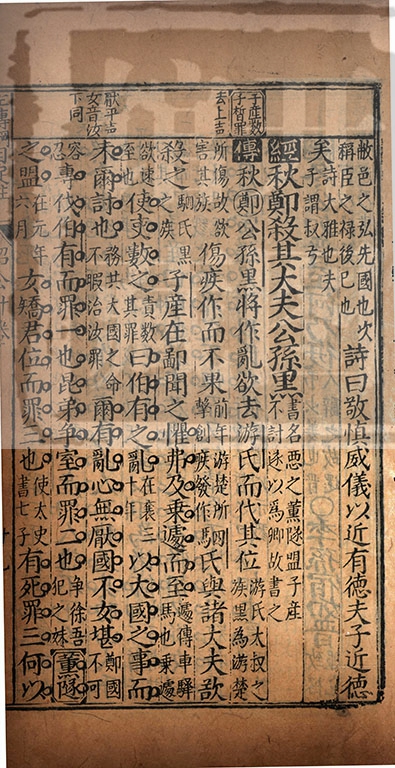 子產數
子晳罪
去上聲
厭平聲
女音汝
下同
敝邑之弘先國也次
稱臣之祿後己也
詩曰敬慎威儀以近有德夫子近德
矣
詩大雅也夫
子謂叔弓
經秋鄭殺其大夫公孫黑
書名惡之薰隧盟子產
不討遂以為卿故書之
傳秋鄭公孫黑將作亂欲去游氏而代其位
游氏大叔之
族黑為游楚
所傷故欲
害其族
傷疾作而不果
前年游楚所
擊創疾發作
駟氏與諸大夫欲
殺之
駟氏黑
之族
子產在鄙聞之懼弗及乘遽而至
遽傳車驛
馬也乘遽
欲速
至也
使吏數之
責數
其罪
曰伯有之亂
在襄三
十年
以大國之事而
未爾討也
務共大國之命
不暇治汝罪
爾有亂心無厭國不女堪
鄭國
不可
容
忍
專伐伯有而罪一也昆弟爭室而罪二也
爭徐吾
犯之妹
薰隧
之盟
在元年
六月
女矯君位而罪三也
使太史
書七子
有死罪三何以